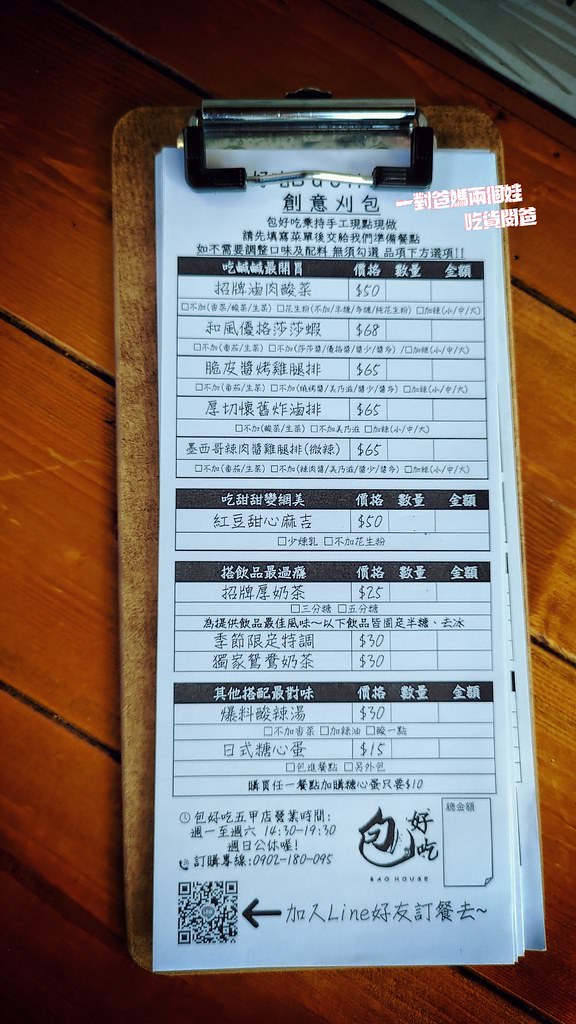 創意刈包
一對爸媽兩個娃
吃貨闆爸
包好吃秉持手工現點現做
請先填寫菜單後交給我們準備餐點
如不需要調整口味及配料 無須勾選 品項下方選項!!
吃鹹鹹最開胃 價格 數量 金額
招牌滷肉酸菜 $50
□不加(香菜/酸菜/生菜) □花生粉(不加/半糖/多糖/純花生粉) □加辣(小/中/大)
和風優格莎莎蝦 $68
□不加(番茄/生菜) □不加(莎莎醬/優格醬/醬少/醬多) /□加辣(小/中/大)
脆皮醬烤雞腿排 $65
□不加(番茄/生菜) □不加(燒烤醬/美乃滋/醬少/醬多) □加辣(小/中/大)
厚切懷舊炸滷排 $65
□不加(酸菜/生菜) □不加美乃滋 □加辣(小/中/大)
墨西哥辣肉醬雞腿排(微辣) $65
□不加(番茄/生菜) □不加(辣肉醬/美乃滋/醬少/醬多) □加辣(小/中/大)
吃甜甜變網美 價格 數量 金額
紅豆甜心麻吉 $50
□少煉乳 □不加花生粉
搭飲品最過癮 價格 數量 金額
招牌厚奶茶 $25
□三分糖 □五分糖
為提供飲品最佳風味~以下飲品皆固定半糖、去冰
季節限定特調 $30
獨家鴛鴦奶茶 $30
其他搭配最對味 價格 數量 金額
爆料酸辣湯 $30
□不加香菜 □加辣油 □酸一點
日式糖心蛋 $15
□包進餐點 □另外包
購買任一餐點加購糖心蛋只要$10
包好吃五甲店營業時間:
週一至週六 14:30-19:30
週日公休喔!
訂購專線:0902-180-095
包好吃
BAO HOUSE
總金額
加入Line好友訂餐去~